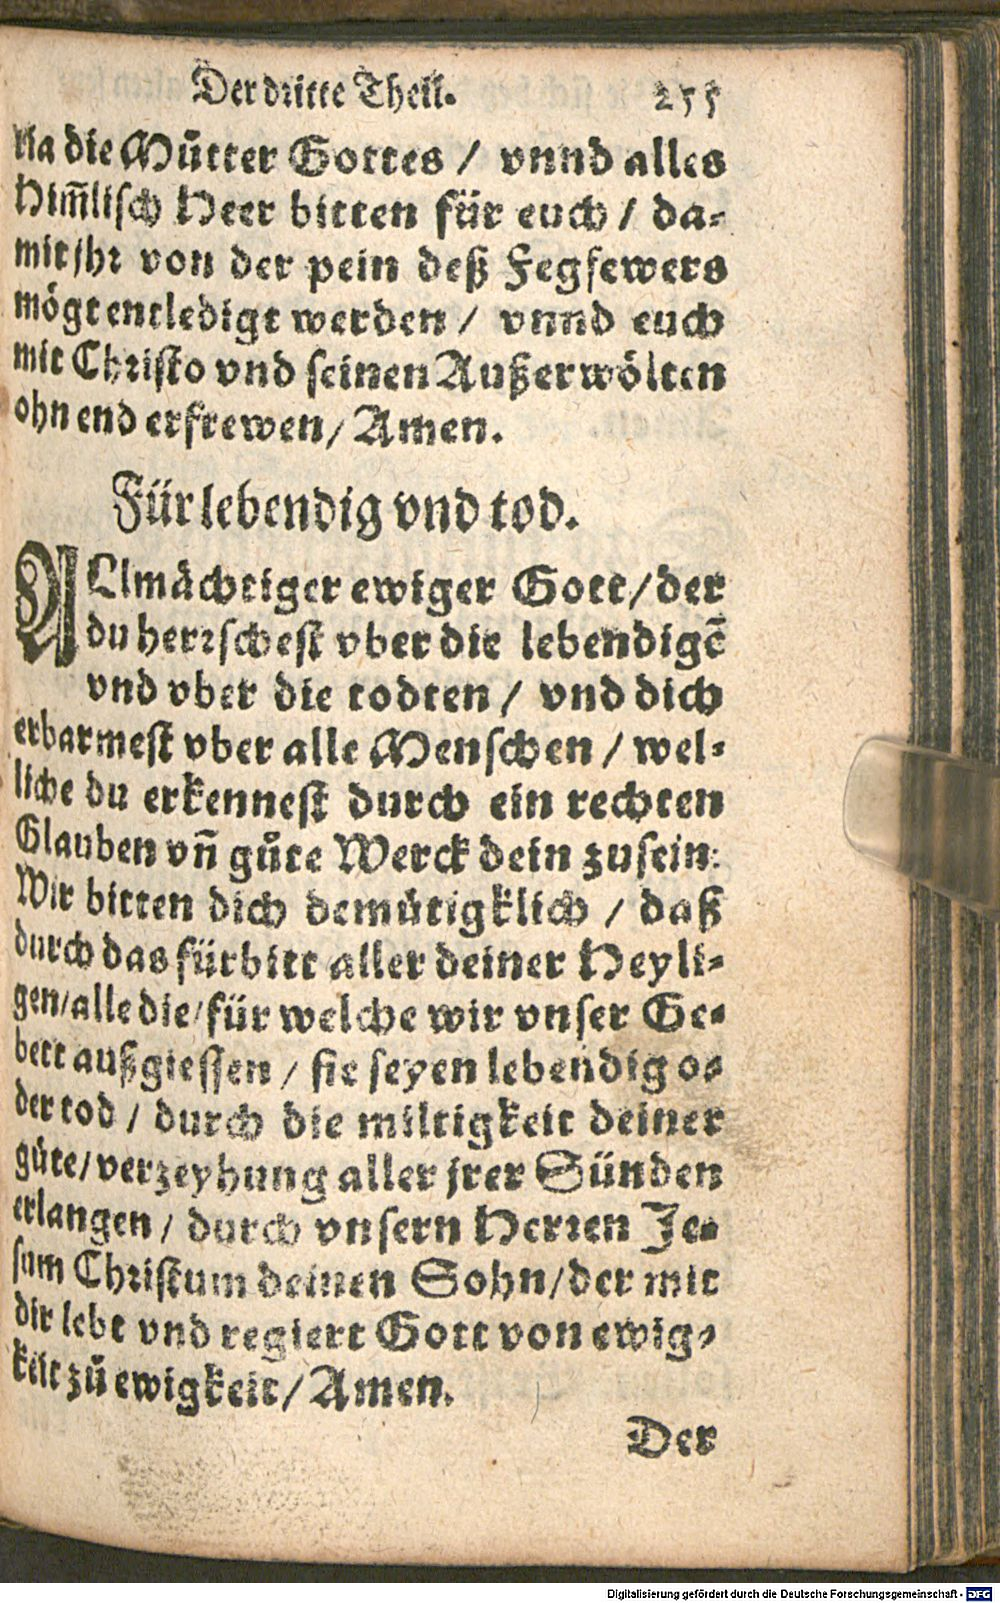 Der dritte Theil. 255
ria die Můtter Gottes / vnnd alles
Him̃lisch Heer bitten für euch / da-
mit jhr von der pein deß Fegfewers
mögt entledigt werden / vnnd euch
mit Christo vnd seinen Außerwölten
ohn end erfrewen / Amen.
Für lebendig vnd tod.
ALlmächtiger ewiger Gott / der
du herrschest vber die lebendigẽ
vnd vber die todten / vnd dich
erbarmest vber alle Menschen / wel-
liche du erkennest durch ein rechten
Glauben vñ gůte Werck dein zusein:
Wir bitten dich demütigklich / daß
durch das fürbitt aller deiner Heyli-
gen / alle die / für welche wir vnser Ge-
bett außgiessen / sie seyen lebendig o-
der tod / durch die miltigkeit deiner
güte / verzeyhung aller jrer Sünden
erlangen / durch vnsern Herren Je-
sum Christum deinen Sohn / der mit
dir lebt vnd regiert Gott von ewig-
keit zů ewigkeit / Amen.
Der
Digitalisierung gefördert durch die Deutsche Forschungsgemeinschaft - DFG